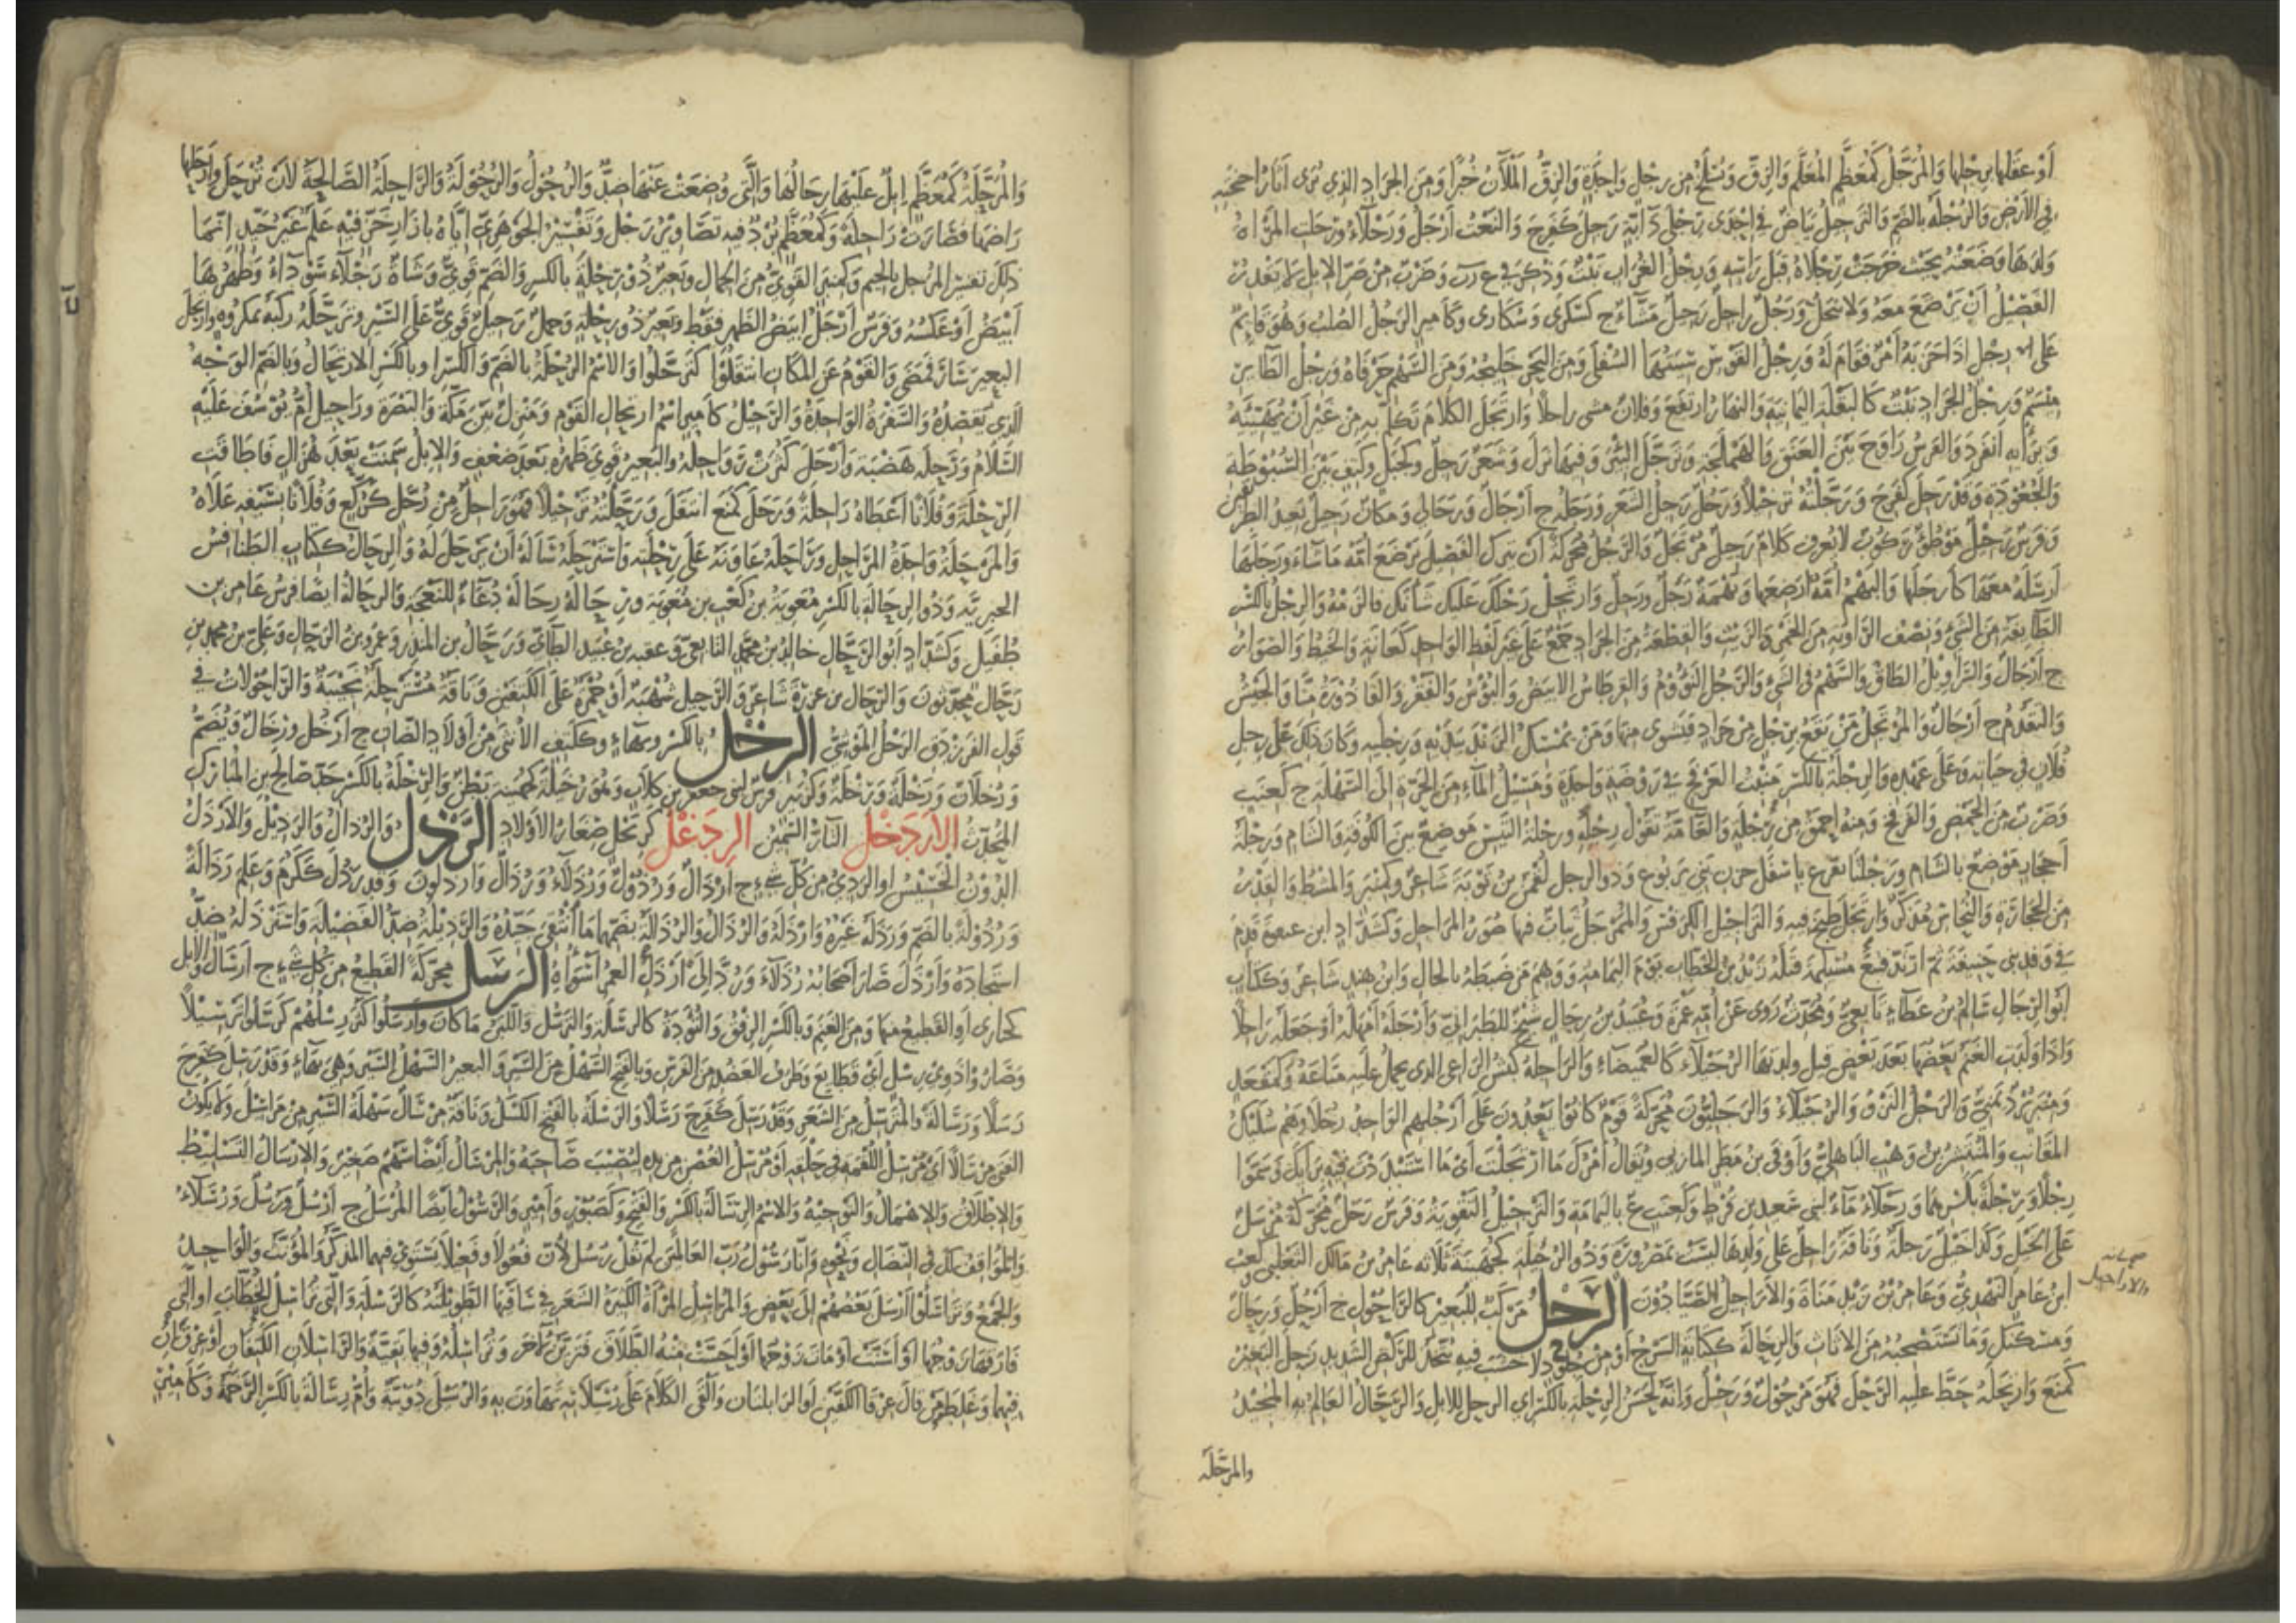 أو عقلها برجلها والمرجل كمعظم المعلم والزق ويسلخ من رجل واحدة والزق الملآن خمرا ومن الجراد الذي ترى آثار اجنحته
في الارض والرجلة بالضم والترجيل بياض في احدى رجلى دابة رجل كفرح والنعت ارجل ورجلاء ورجلت المرأة
ولدها وضعته بحيث خرجت رجلاه قبل رأسه ورجل الغراب نبت وذكر في غ ر ب وضرب من صر الابل لا يقدر
الفصيل ان يرضع معه ولا ينحل ورجل راجل رجيل مشاء ج كسكرى وسكارى وكامير الرجل الصلب وهو قائم
على رجل اذا حزبه امر فقام له ورجل القوس سيتها السفلى ومن البحر خليجه ومن السهم حرفاه ورجل الطائر
ميسم ورجل الجراد نبت كالبقلة اليمانية والنهار ارتفع وفلان مشى راجلا وارتجل الكلام تكلم به من غير ان يهيئه
وبرأيه انفرد والفرس راوح بين العنق والهملجة وترجل البئر وفيها نزل وشعر رجل وكجبل وكتف بين السبوطة
والجعودة وقد رجل كفرح ورجلته ترجيلا ورجل رجل الشعر ورجله ج ارجال ورجالى ومكان رجيل بعيد الطرفين
وفرس رجيل موطؤ ركوب لا يعرق وكلام رجيل مرتجل والرجل محركة ان يترك الفصيل يرضع امه ما شاء ورجلها
ارسله معها كارجلها والبهم امه ارضعها وبهمة رجل ورجل وارتجل رجلك عليك شأنك فالزمه والرجل بالكسر
الطائفة من الشئ ونصف الراوية من الخمر والزيت والقطعة من الجراد جمع على غير لفظ الواحد كالعانة والخيط والصوار
ج ارجال والسراويل الطاق والسهم في الشئ والرجل النؤوم والقرطاس الابيض والبؤس والفقر والقاذورة منا والجيش
والتقدم ج ارجال والمرتجل من يقع برجل من جراد فيشوى منها ومن يمسك الزند بيديه ورجليه وكان ذلك على رجل
فلان في حياته وعلى عهده والرجلة بالكسر منبت العرفج في روضة واحدة ومسيل الماء من الحرة الى السهلة ج كعنب
وضرب من الحمض والعرفج ومنه احمق من رجلة والعامة تقول رجله ورجلة التيس موضع بين الكوفة والشام ورجلة
احجار موضع بالشام ورجلتا بقر ع باسفل حزن بنى يربوع وذو الرجل لقمن بن توبة شاعر وكمنبر والمشط والقدر
من الحجارة والنحاس مذكر وارتجل طبخ فيه والتراجيل الكرفس والممرجل ثياب فيها صور المراجل وكشداد ابن عنفوة قدم
في وفد بنى حنيفة ثم ارتد فتبع مسيلمة قتله زيد بن الخطاب يوم اليمامة ووهم من ضبطه بالحاء وابن هند شاعر وككتاب
ابو الرجال سالم بن عطاء تابعي ومحدث روى عن امه عمرة وعبيد بن رجال شيخ للطبراني وارجله امهله او جعله راجلا
واذا ولدت الغنم بعضها بعد بعض قيل ولدتها الرجيلاء كالغميصاء والراجلة كبش الراعى الذى يحمل عليه متاعه وكمقعد
ومنبر برد يمني والرجل النزو والرجيلاء والرجليون محركة قوم كانوا يعدون على ارجلهم الواحد رجلى وهم سليك
المقانب والمنتشر بن وهب الباهلي واوفى بن مطر المازنى ويقال امرك ما ارتجلت اى ما استبددت فيه برأيك وسموا
رجلا ورجلة بكسرهما ورجلاء ماء لبنى سعيد بن قرط وكعنب ع باليمامة والترجيل التقوية وفرس رجل محركة مرسل
على الخيل وكذا خيل رجل وناقة راجل على ولدها ليست بمصرورة وذو الرجلة كجهينة ثلاثة عامر بن مالك التغلبي وكعب
ابن عامر النهدي وعامر بن زيد مناة والاراجيل الصيادون الرحل مركب للبعير كالراحول ج ارحل ورحال
ومسكنك وما تستصحبه من الاثاث والرحالة ككتابة السرج او من جلود لا خشب فيه يتخذ للركض الشديد رحل البعير
كمنع وارتحله حط عليه الرحل فهو مرحول ورحيل وانه لحسن الرحلة بالكسر اى الرحل للابل والرحال العالم به المجيد
والاراجيل
والمرحلة
والمرحلة كمعظم ابل عليها رحالها والتى وضعت عنها ضد والرحول والرحولة والراحلة الصالحة لان ترحل وارحلها
راضها فصارت راحلة وكمعظم برد فيه تصاوير رحل وتفسير الجوهرى اياه بازار خز فيه علم غير جيد انما
ذلك تفسير المرجل بالجيم وكمنبر القوى من الجمال وبعير ذو رحلة بالكسر والضم قوي وشاة رحلاء سوداء وظهرها
ابيض او عكسه وفرس ارحل ابيض الظهر فقط وبعير ذو رحلة وجمل رحيل قوى على السير وترحله ركبه بمكروه وارتحل
البعير سار فمضى والقوم عن المكان انتقلوا كترحلوا والاسم الرحلة بالضم والكسر او بالكسر الارتحال وبالضم الوجه
الذي يقصده والسفرة الواحدة والرحيل كامير اسم ارتحال القوم ومنزل بين مكة والبصرة وراحيل ام يوسف عليه
السلام ورحلة هضبة وارحل كثرت رواحله والبعير قوى ظهره بعد ضعف والابل سمنت بعد هزال فاطاقت
الرحلة وفلانا اعطاه راحلة ورحل كمنع انتقل ورحلته ترحيلا فهو راحل من رحل كركع وفلانا بسيفه علاه
والمرحلة واحدة المراحل وراحله عاونه على رحلته واسترحله سأله ان يرحل له والرحال ككتاب الطنافس
الحيرية وذو الرحالة بالكسر معوية بن كعب بن معوية ورحالة رحالة دعاء للنعجة والرحالة ايضا فرس عامر بن
طفيل وكشداد ابو الرحال خالد بن محمد التابعي وعقبة بن عبيد الطائي ورحال بن المنذر وعمرو بن الرحال وعلى بن محمد بن
رحال محدثون والرحال بن عزرة شاعر والترحيل شهبة او حمرة على الكتفين وناقة مسترحلة نجيبة والراحولات في
قول الفرزدق الرحل الموشى الرخل بالكسر وبهاء وككتف الانثى من اولاد الضان ج ارخل ورخال ويضم
ورخلان ورخلة ورخلة وكزبير فرس لبنى جعفر بن كلاب وبنو رخيلة كجهينة بطن والرخلة بالكسر جد صالح بن المبارك
المحدث الاردخل التار السمين الردغل كزبرج صغار الاولاد الرذل والرذال والرذيل والارذل
الدون الخسيس او الردىء من كل شىء ج ارذال ورذول ورذلاء ورذال وارذلون وقد رذل ككرم وعلم رذالة
ورذولة بالضم ورذله غيره وارذله والرذال والرذالة بضمهما ما انتقى جيده والرذيلة ضد الفضيلة واسترذله ضد
استجاده وارذل صار اصحابه رذلاء ورد الى ارذل العمر اسوأه الرسل محركة القطيع من كل شىء ج ارسال والابل
كحبارى او القطيع منها ومن الغنم وبالكسر الرفق والتؤدة كالرسلة والترسل واللبن ما كان وارسلوا كثر رسلهم كرسلوا ترسيلا
وصاروا ذوي رسل اى قطائع وطرف العضد من الفرس وبالفتح السهل من السير والبعير السهل السير وهى بهاء وقد رسل كفرح
رسلا ورسالة والمترسل من الشعر وقد رسل كفرح رسلا والرسلة بالفتح الكسل وناقة مرسال سهلة السير من مراسيل ولا يكون
الفتى مرسالا اى مرسل اللقمة في حلقه او مرسل الغصن من يده ليصيب صاحبه والمرسال ايضا سهم صغير والارسال التسليط
والاطلاق والاهمال والتوجيه والاسم الرسالة بالكسر والفتح وكصبور وامير والرسول ايضا المرسل ج ارسل ورسل ورسلاء
والموافق لك في النضال ونحوه وانا رسول رب العالمين لم يقل رسل لان فعولا وفعيلا يستوى فيهما المذكر والمؤنث والواحد
والجمع وتراسلوا ارسل بعضهم الى بعض والمراسل المرأة الكثيرة الشعر في ساقيها الطويلته كالرسلة والتى تراسل الخطاب او التى
فارقها زوجها او اسنت او مات زوجها او احست منه الطلاق فتزين لآخر وتراسله وفيها بقية والراسلان الكتفان او عرقان
فيهما وغلط من قال عرقا الكفين او الرابلتان والقى الكلام على رسيلاته تهاون به والرسيلى دويبة وام رسالة بالكسر الرخمة وكامير